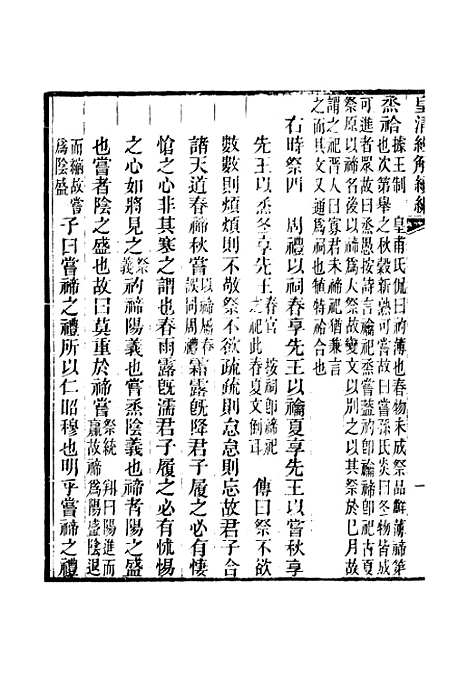 皇清經解續編
烝祫據王制 皇甫氏侃曰礿薄也春物未成祭品鮮薄禘第
也次第舉之秋穀新熟可嘗故曰嘗孫氏炎曰冬物皆成
可進者眾故曰烝愚按詩言禴祀烝嘗蓋礿卽禴禘卽祀古夏
祭原以禘名後以禘爲大祭故變文以別之以其祭於巳月故
謂之祀晉人曰寡君未禘祀猶兼言
之而其文又通爲祠也犆特祫合也
右時祭四 周禮以祠春享先王以禴夏享先王以嘗秋享
先王以烝冬享先王春官 按祠卽禘祀
之祀此春夏文倒耳 傳曰祭不欲
數數則煩煩則不敬祭不欲疏疏則怠怠則忘故君子合
諸天道春禘秋嘗以禘屬春
誤同周禮霜露旣降君子履之必有悽
愴之心非其寒之謂也春雨露旣濡君子履之必有怵惕
之心如將見之祭
義礿禘陽義也嘗烝陰義也禘者陽之盛
也嘗者陰之盛也故曰莫重於禘嘗祭統 翔曰陽進而
贏故禘爲陽盛陰退
而縮故嘗
爲陰盛 子曰嘗禘之禮所以仁昭穆也明乎嘗禘之禮